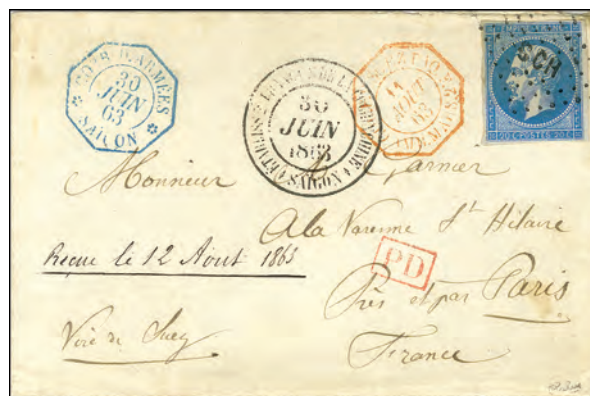 CORR. D'ARMEES
30
JUIN
63
SAIGON
30
JUIN
1863
SAIGON
11
AOUT
63
CCH
20 C POSTES 20 C
Monsieur A. Garnier
A la Varenne St Hilaire
Reçue le 12 Aout 1863
PD
Près et par Paris
Voie de Suez
France